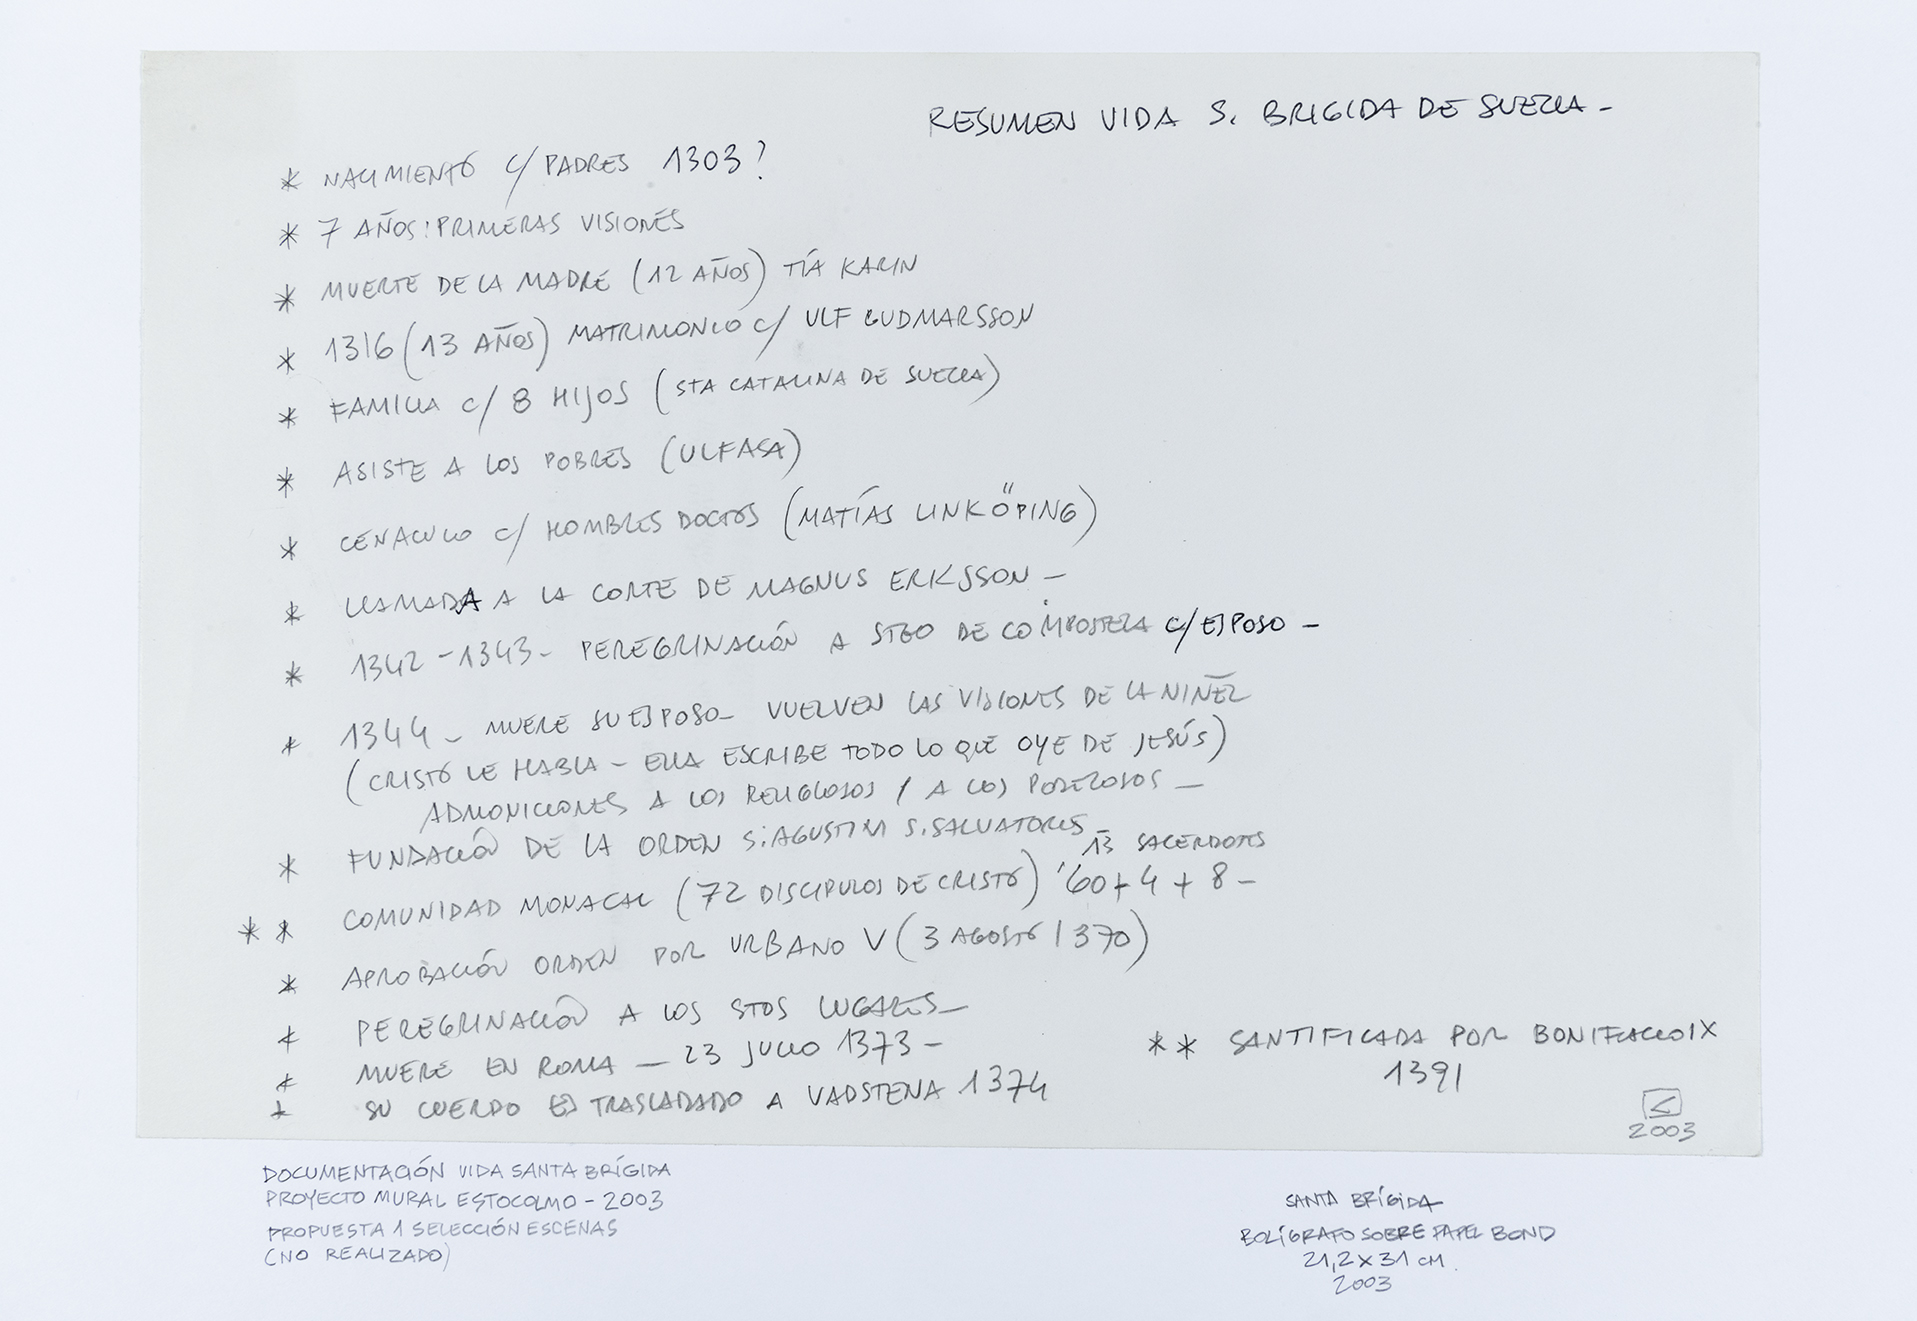 RESUMEN VIDA S. BRIGIDA DE SUECIA -
* NACIMIENTO C/ PADRES 1303?
* 7 AÑOS: PRIMERAS VISIONES
* MUERTE DE LA MADRE (12 AÑOS) TÍA KARIN
* 1316 (13 AÑOS) MATRIMONIO C/ ULF GUDMARSSON
* FAMILIA C/ 8 HIJOS (STA CATALINA DE SUECIA)
* ASISTE A LOS POBRES (ULFASA)
* CENACULO C/ HOMBRES DOCTOS (MATÍAS LINKÖPING)
* LLAMADA A LA CORTE DE MAGNUS ERIKSSON -
* 1342 - 1343 - PEREGRINACIÓN A STGO DE COMPOSTELA C/ ESPOSO -
* 1344 - MUERE SU ESPOSO - VUELVEN LAS VISIONES DE LA NIÑEZ
(CRISTO LE HABLA - ELLA ESCRIBE TODO LO QUE OYE DE JESÚS)
ADMONICIONES A LOS RELIGIOSOS / A LOS PODEROSOS -
* FUNDACIÓN DE LA ORDEN S. AGUSTIN S. SALVATORIS -
13 SACERDOTES
* * COMUNIDAD MONACAL (72 DISCIPULOS DE CRISTO) 60 + 4 + 8 -
* APROBACIÓN ORDEN POR URBANO V (3 AGOSTO 1370)
* PEREGRINACIÓN A LOS STOS LUGARES -
* MUERE EN ROMA - 23 JULIO 1373 -
* SU CUERPO ES TRASLADADO A VADSTENA 1374
* * SANTIFICADA POR BONIFACIO IX
1391
2003
DOCUMENTACIÓN VIDA SANTA BRÍGIDA
PROYECTO MURAL ESTOCOLMO - 2003
PROPUESTA 1 SELECCIÓN ESCENAS
(NO REALIZADO)
SANTA BRÍGIDA
BOLÍGRAFO SOBRE PAPEL BOND
21,2 X 31 CM.
2003